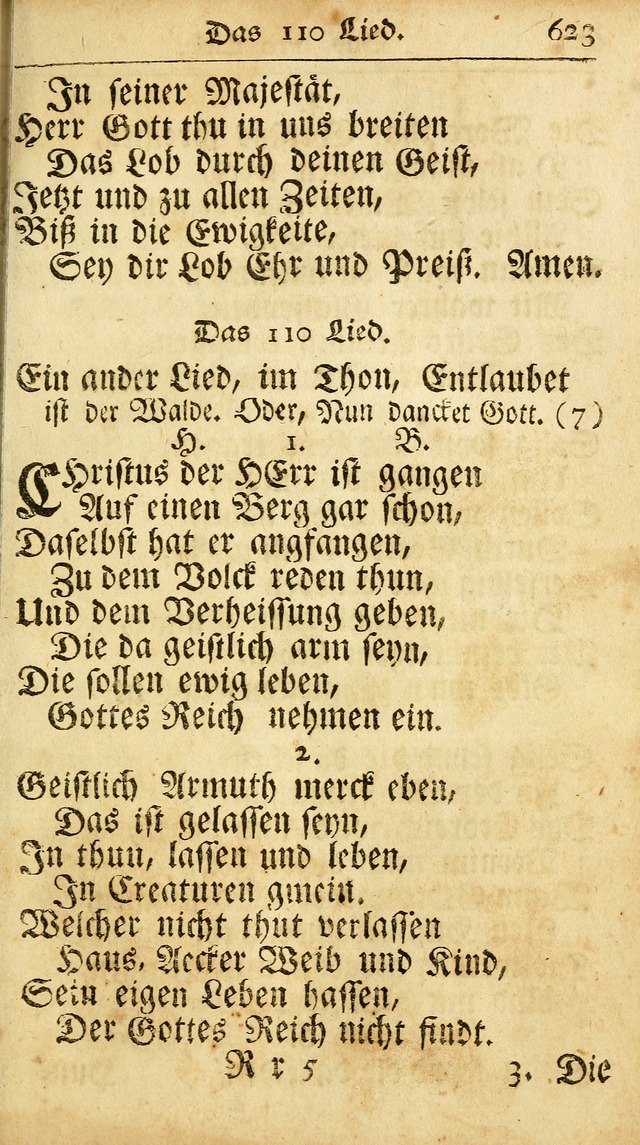 Das 110 Lied. 623
In seiner Majestät,
Herr Gott thu in uns breiten
Das Lob durch deinen Geist,
Jetzt und zu allen Zeiten,
Biß in die Ewigkeite,
Sey dir Lob Ehr und Preiß. Amen.
Das 110 Lied.
Ein ander Lied, im Thon, Entlaubet
ist der Walde. Oder, Nun dancket Gott. (7)
H. 1. B.
CHristus der HErr ist gangen
Auf einen Berg gar schon,
Daselbst hat er angfangen,
Zu dem Volck reden thun,
Und dem Verheissung geben,
Die da geistlich arm seyn,
Die sollen ewig leben,
Gottes Reich nehmen ein.
2.
Geistlich Armuth merck eben,
Das ist gelassen seyn,
In thun, lassen und leben,
In Creaturen gmein.
Welcher nicht thut verlassen
Haus, Aecker Weib und Kind,
Sein eigen Leben hassen,
Der Gottes Reich nicht findt.
R r 5 3. Die